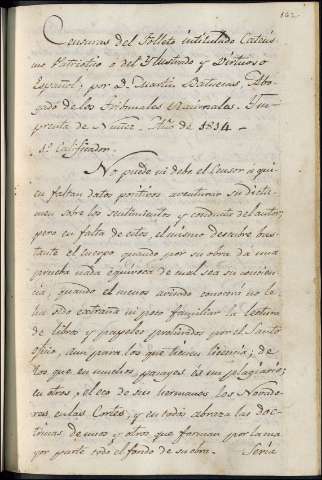 162
Censuras del Folleto intitulado Catecis
mo Patriotico o del Ylustrado y Virtuoso
Español; por D. Martin Batueras, Abo
gado de los Tribunales Nacionales. Ym
prenta de Nuñez. Año de 1814 –
1.º Calificador.
No puede ni debe el Censor a qui
en faltan datos positivos aventurar su dicta
men sobre los sentimientos y conducta del autor;
pero en falta de estos, el mismo descubre bas
tante el cuerpo quando por su obra da una
prueba nada equivoca de cual sea su concien
cia; quando el menos avisado conocerá no le
ha sido extraña ni poco familiar la lectura
de libros y papeles prohividos por el Santo
oficio, aun para los que tienen licencia; de
los que en muchos pasages es un plagiario;
en otros, el eco de sus hermanos los Novado
res, en las Cortes, y en todos abraza las doc
trinas de unos y otros que forman por la ma
yor parte todo el fondo de su obra. Seria